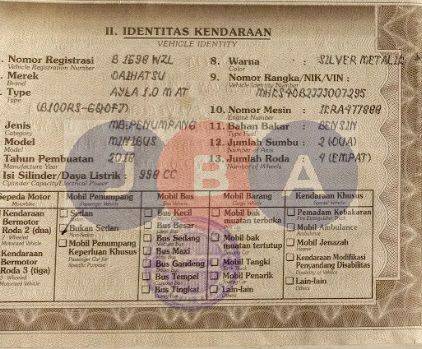 II. IDENTITAS KENDARAAN
VEHICLE IDENTITY
Nomor Registrasi B 1698 NZL
Vehicle Registration Number
Merek DAIHATSU
Type AYLA 1.0 M AT
Jenis MB.PENUMPANG
Category
Model MINIBUS
Model
Tahun Pembuatan 2018
Manufacture Year
Isi Silinder/Daya Listrik : 998 CC
Cylinder Capacity/Electrical Power
8. Warna : SILVER METALIK
Color
9. Nomor Rangka/NIK/VIN :
Vehicle Identity Number
10. Nomor Mesin :
Engine Number
11. Bahan Bakar : BENSIN
12. Jumlah Sumbu : 2 (DUA)
Number of Axis
13. Jumlah Roda : 4 (EMPAT)
Number of Wheels
JBA
Sepeda Motor
Kendaraan Bermotor Roda 2 (dua)
2 - Wheeled Motorized Vehicle
Kendaraan Bermotor Roda 3 (tiga)
3 - Wheeled Motorized Vehicle
Mobil Penumpang
Passenger Vehicle
Sedan
Bukan Sedan
Mobil Penumpang Keperluan Khusus
Passenger Car for Specific Purpose
Mobil Bus
Bus Kecil
Bus Besar
Bus Sedang
Bus Maxi
Bus Gandeng
Bus Tempel
Bus Tingkat
Mobil Barang
Mobil bak muatan terbuka
Mobil bak muatan tertutup
Mobil Tangki
Mobil Penarik
Lain-lain
Others
Kendaraan Khusus
Pemadam Kebakaran
Mobil Ambulance
Mobil Jenazah
Kendaraan Modifikasi Penyandang Disabilitas
Lain-lain
Others